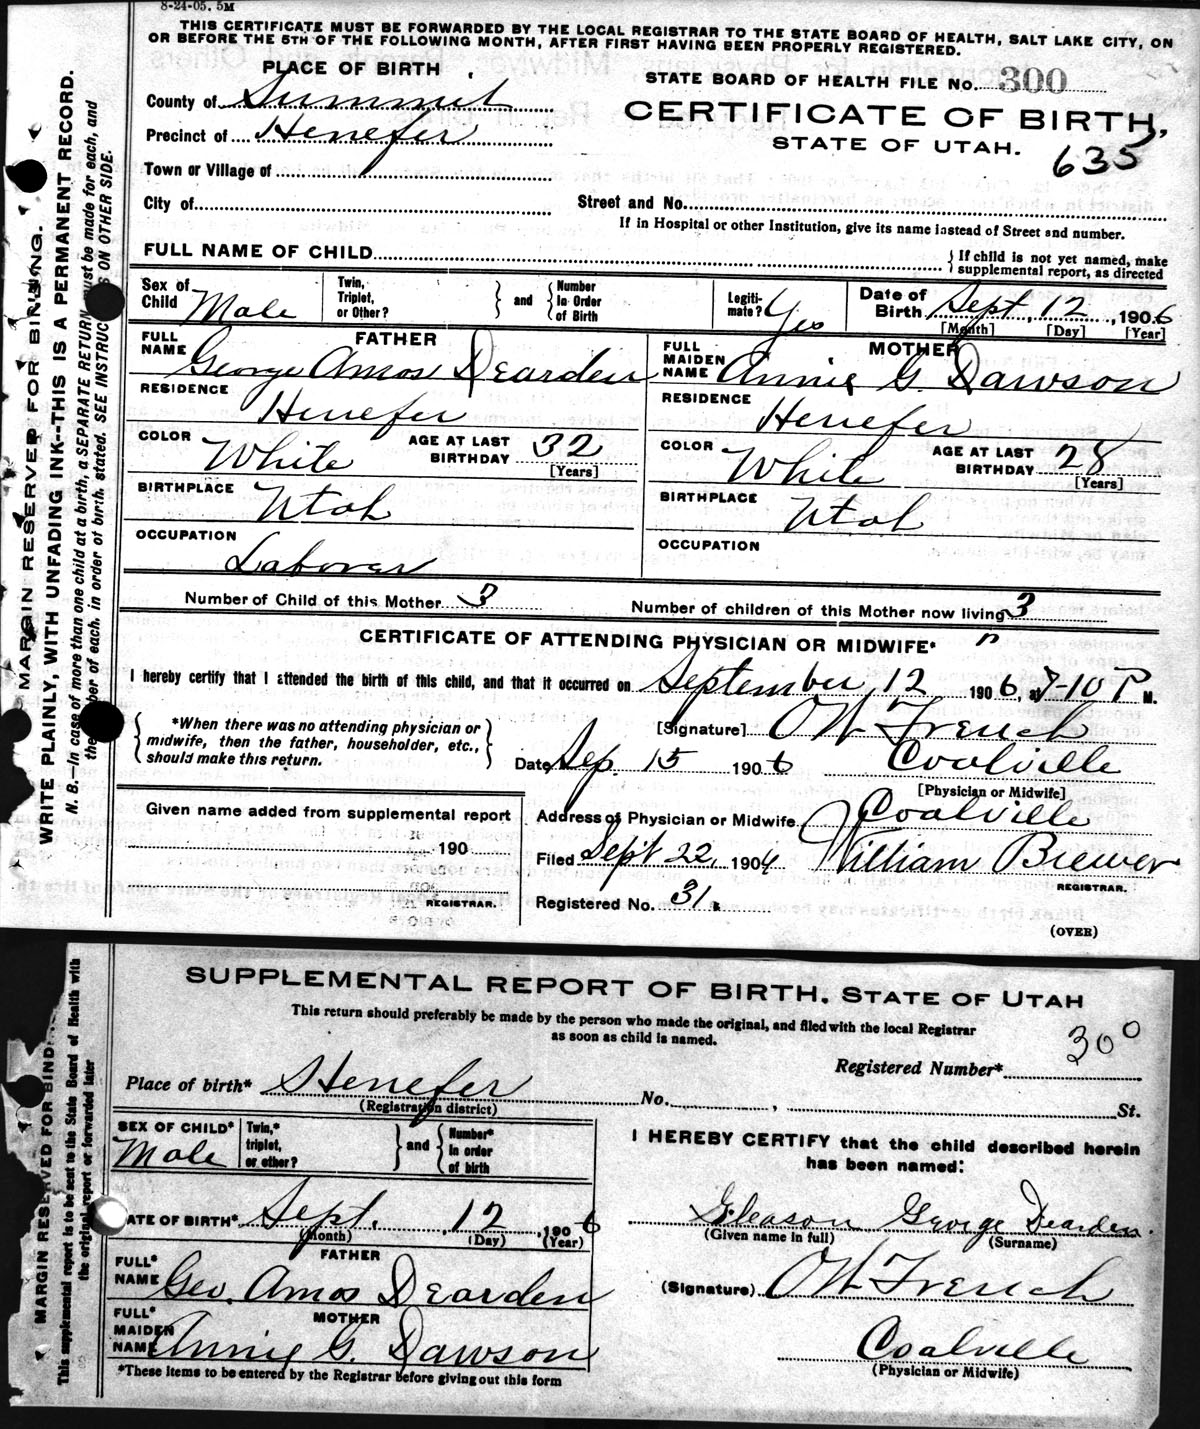 8-24-05. 5M
THIS CERTIFICATE MUST BE FORWARDED BY THE LOCAL REGISTRAR TO THE STATE BOARD OF HEALTH, SALT LAKE CITY, ON
OR BEFORE THE 5TH OF THE FOLLOWING MONTH, AFTER FIRST HAVING BEEN PROPERLY REGISTERED.
PLACE OF BIRTH
STATE BOARD OF HEALTH FILE No. 300
County of Summit
CERTIFICATE OF BIRTH,
Precinct of Henefer
STATE OF UTAH.
635
Town or Village of
City of
Street and No.
If in Hospital or other Institution, give its name instead of Street and number.
FULL NAME OF CHILD
If child is not yet named, make
supplemental report, as directed
Sex of Child Male
Twin, Triplet, or Other? and Number In Order of Birth
Legitimate? Yes
Date of Birth Sept 12, 1906
[Month] [Day] [Year]
FATHER
FULL NAME George Amos Dearden
MOTHER
FULL MAIDEN NAME Annie G. Dawson
RESIDENCE Henefer
RESIDENCE Henefer
COLOR White AGE AT LAST BIRTHDAY 32 [Years]
COLOR White AGE AT LAST BIRTHDAY 28 [Years]
BIRTHPLACE Utah
BIRTHPLACE Utah
OCCUPATION Laborer
OCCUPATION
Number of Child of this Mother 3
Number of children of this Mother now living 3
CERTIFICATE OF ATTENDING PHYSICIAN OR MIDWIFE*
I hereby certify that I attended the birth of this child, and that it occurred on September 12 1906, at 7-10 P M.
*When there was no attending physician or
midwife, then the father, householder, etc.,
should make this return.
[Signature] O W French
Date Sep. 15 1906 Coalville
[Physician or Midwife]
Given name added from supplemental report
190
REGISTRAR.
Address of Physician or Midwife Coalville
Filed Sept 22, 190 William Brewer
REGISTRAR.
Registered No. 31.
(OVER)
MARGIN RESERVED FOR BINDING.
WRITE PLAINLY, WITH UNFADING INK--THIS IS A PERMANENT RECORD.
N. B.—In case of more than one child at a birth, a SEPARATE RETURN must be made for each, and
the number of each, in order of birth, stated. SEE INSTRUCTIONS ON OTHER SIDE.
SUPPLEMENTAL REPORT OF BIRTH. STATE OF UTAH
This return should preferably be made by the person who made the original, and filed with the local Registrar
as soon as child is named.
Registered Number* 300
Place of birth* Henefer No. , St.
(Registration district)
SEX OF CHILD* Male
Twin,* triplet, or other? and Number* in order of birth
I HEREBY CERTIFY that the child described herein
has been named:
DATE OF BIRTH* Sept. 12, 1906
(Month) (Day) (Year)
Gleason George Dearden
(Given name in full) (Surname)
FATHER
FULL* NAME Geo. Amos Dearden
(Signature) O W French
MOTHER
FULL* MAIDEN NAME Annie G. Dawson
Coalville
(Physician or Midwife)
*These items to be entered by the Registrar before giving out this form
MARGIN RESERVED FOR BIND
This supplemental report is to be sent to the State Board of Health with
the original report or forwarded later